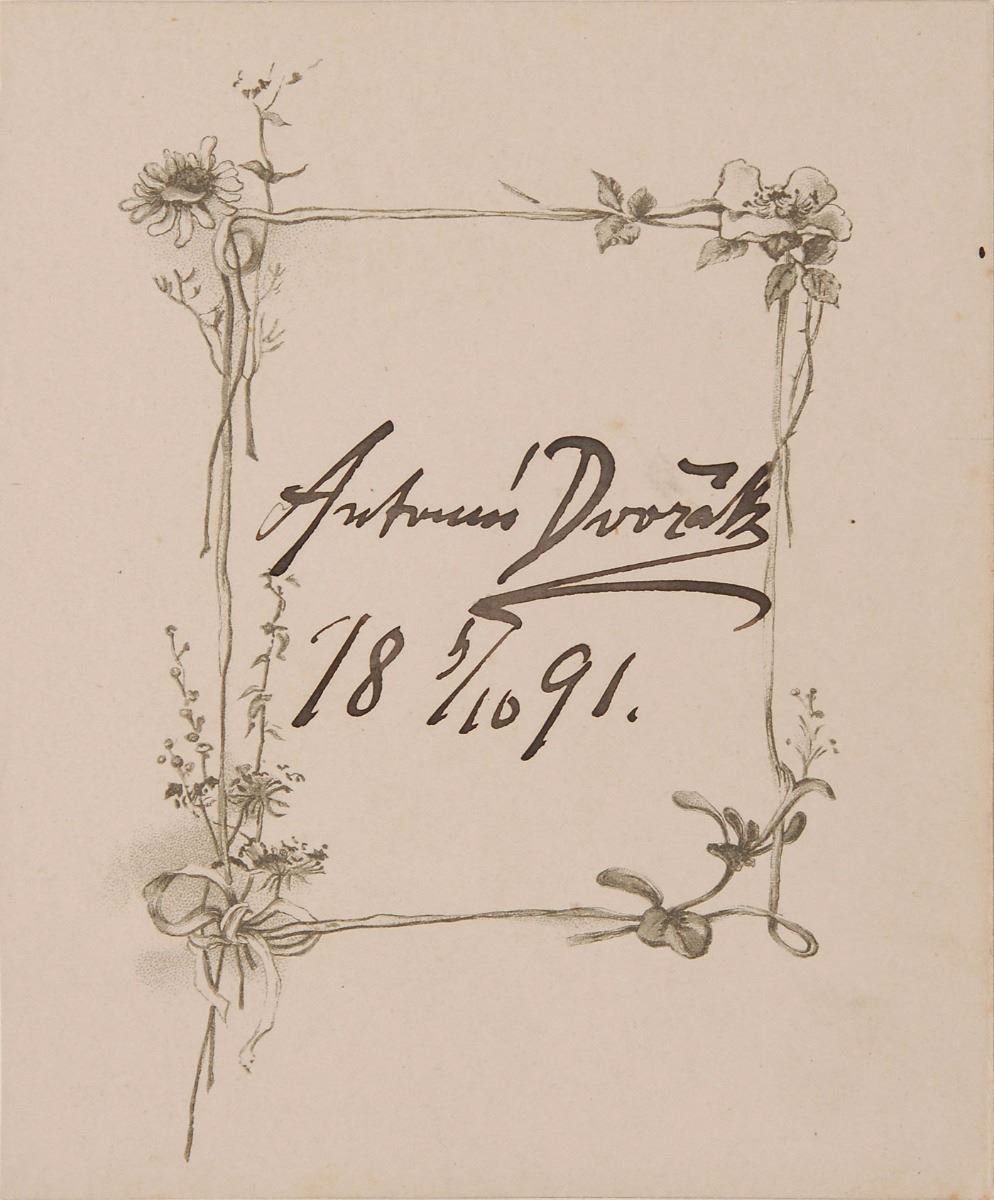 Antonín Dvořák
18 5/10 91.